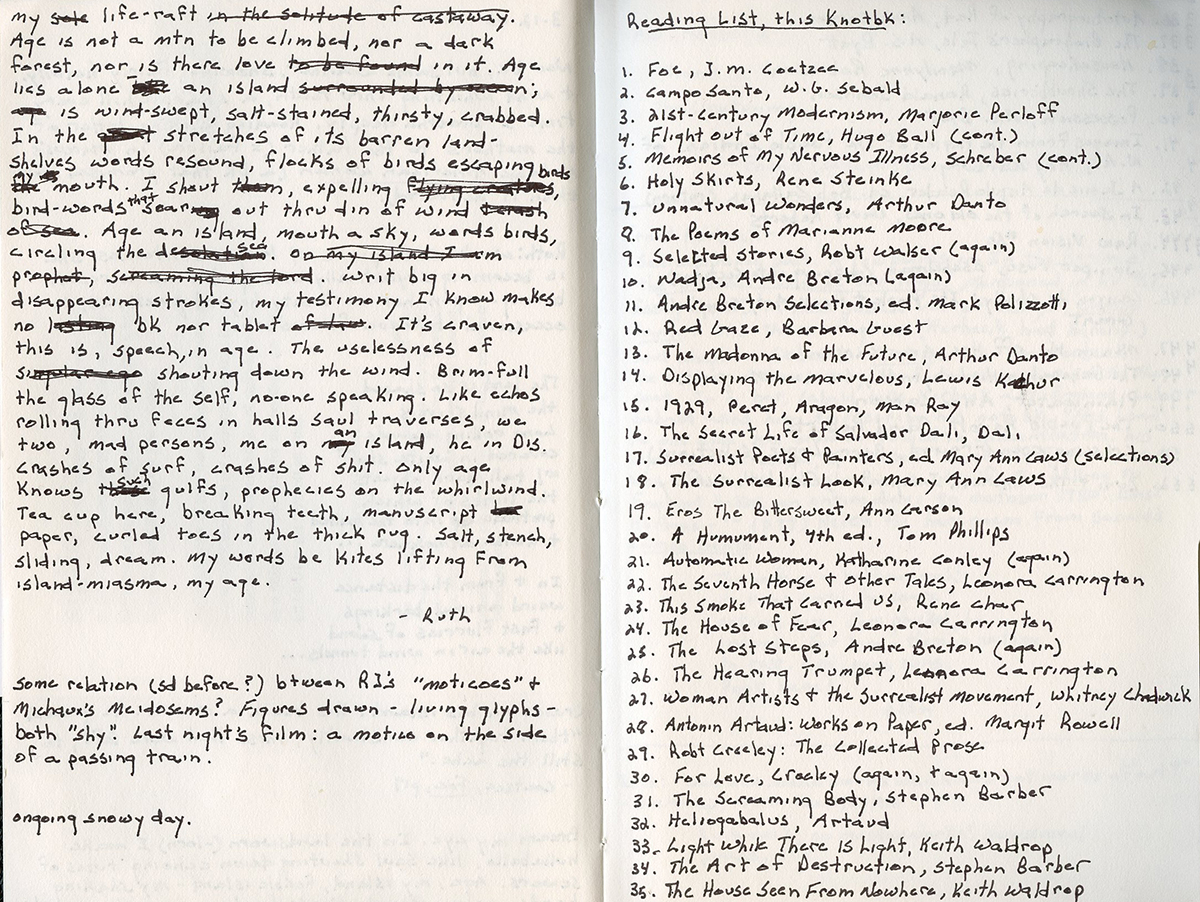 my sole life-raft in the solitude of castaway.
Age is not a mtn to be climbed, nor a dark
forest, nor is there love to be found in it. Age
lies alone – an island surrounded by ocean;
is wind-swept, salt-stained, thirsty, crabbed.
In the stretches of its barren land-
shelves words resound, flocks of birds escaping birds
my mouth. I shout them, expelling flying creatures,
bird-words that soar out thru din of wind thrash
of sea. Age an island, mouth a sky, words birds,
circling the desolation sea. On my island I am
prophet, screaming the lord. writ big in
disappearing strokes, my testimony I know makes
no lasting bk nor tablet of law. It's craven,
this is, speech, in age. The uselessness of
singular ego shouting down the wind. Brim-full
the glass of the self, no-one speaking. Like echos
rolling thru feces in halls Saul traverses, we
two, mad persons, me on my an island, he in Dis.
Crashes of surf, crashes of shit. Only age
knows these such gulfs, prophecies on the whirlwind.
Tea cup here, breaking teeth, manuscript
paper, curled toes in the thick rug. Salt, stench,
sliding, dream. My words be kites lifting from
island-miasma, my age.
- Ruth
Some relation (sd before?) btween RJ's "moticoes" &
Michaux's Meidosems? Figures drawn - living glyphs -
both "shy". Last night's film: a motico on the side
of a passing train.
ongoing snowy day.
Reading List, this Knotbk:
1. Foe, J.M. Coetzee
2. Campo Santo, W.G. Sebald
3. 21st-Century Modernism, Marjorie Perloff
4. Flight Out of Time, Hugo Ball (cont.)
5. Memoirs of My Nervous Illness, Schreber (cont.)
6. Holy Skirts, Rene Steinke
7. Unnatural Wonders, Arthur Danto
8. The Poems of Marianne Moore
9. Selected Stories, Robt Walser (again)
10. Nadja, Andre Breton (again)
11. Andre Breton Selections, ed. Mark Polizzotti
12. Red Gaze, Barbara Guest
13. The Madonna of the Future, Arthur Danto
14. Displaying the Marvelous, Lewis Kachur
15. 1929, Peret, Aragon, Man Ray
16. The Secret Life of Salvador Dali, Dali
17. Surrealist Poets & Painters, ed. Mary Ann Caws (selections)
18. The Surrealist Look, Mary Ann Caws
19. Eros The Bittersweet, Ann Carson
20. A Humument, 4th ed., Tom Phillips
21. Automatic Woman, Katharine Conley (again)
22. The Seventh Horse & Other Tales, Leonora Carrington
23. This Smoke That Carried Us, Rene Char
24. The House of Fear, Leonora Carrington
25. The Lost Steps, Andre Breton (again)
26. The Hearing Trumpet, Leonora Carrington
27. Woman Artists & the Surrealist Movement, Whitney Chadwick
28. Antonin Artaud: Works on Paper, ed. Margit Rowell
29. Robt Creeley: The Collected Prose
30. For Love, Creeley (again, & again)
31. The Screaming Body, Stephen Barber
32. Heliogabalus, Artaud
33. Light While There is Light, Keith Waldrop
34. The Art of Destruction, Stephen Barber
35. The House Seen From Nowhere, Keith Waldrop